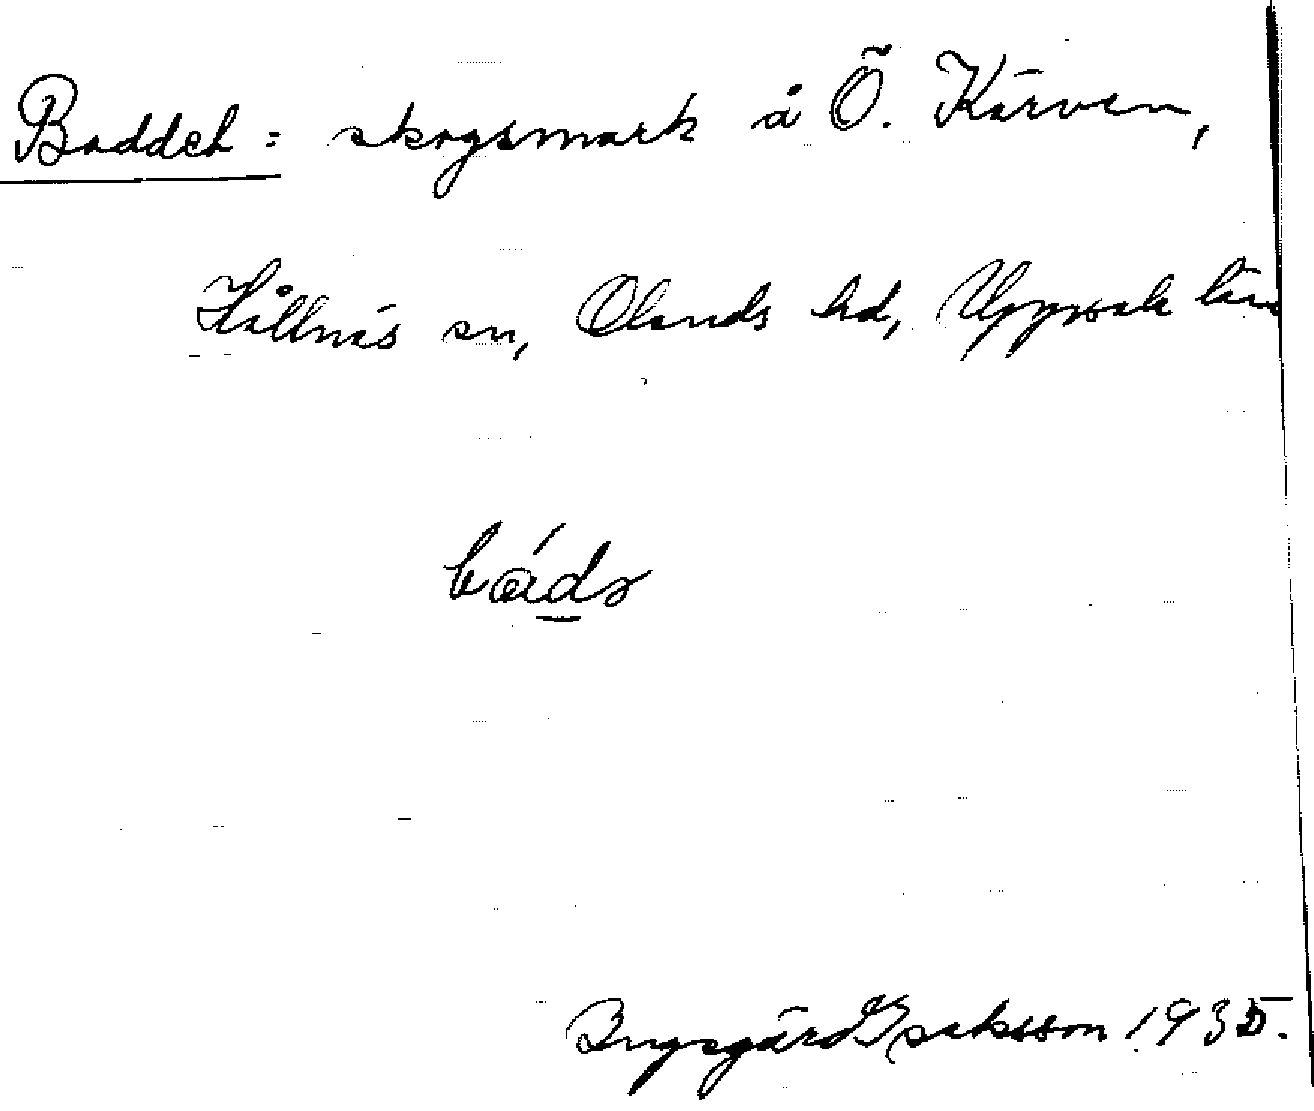 Baddet: skogsmark å Ö. Kärven,
Hållnäs sn, Olands hd, Uppsala län
Ingegärd Isaksson 1935.